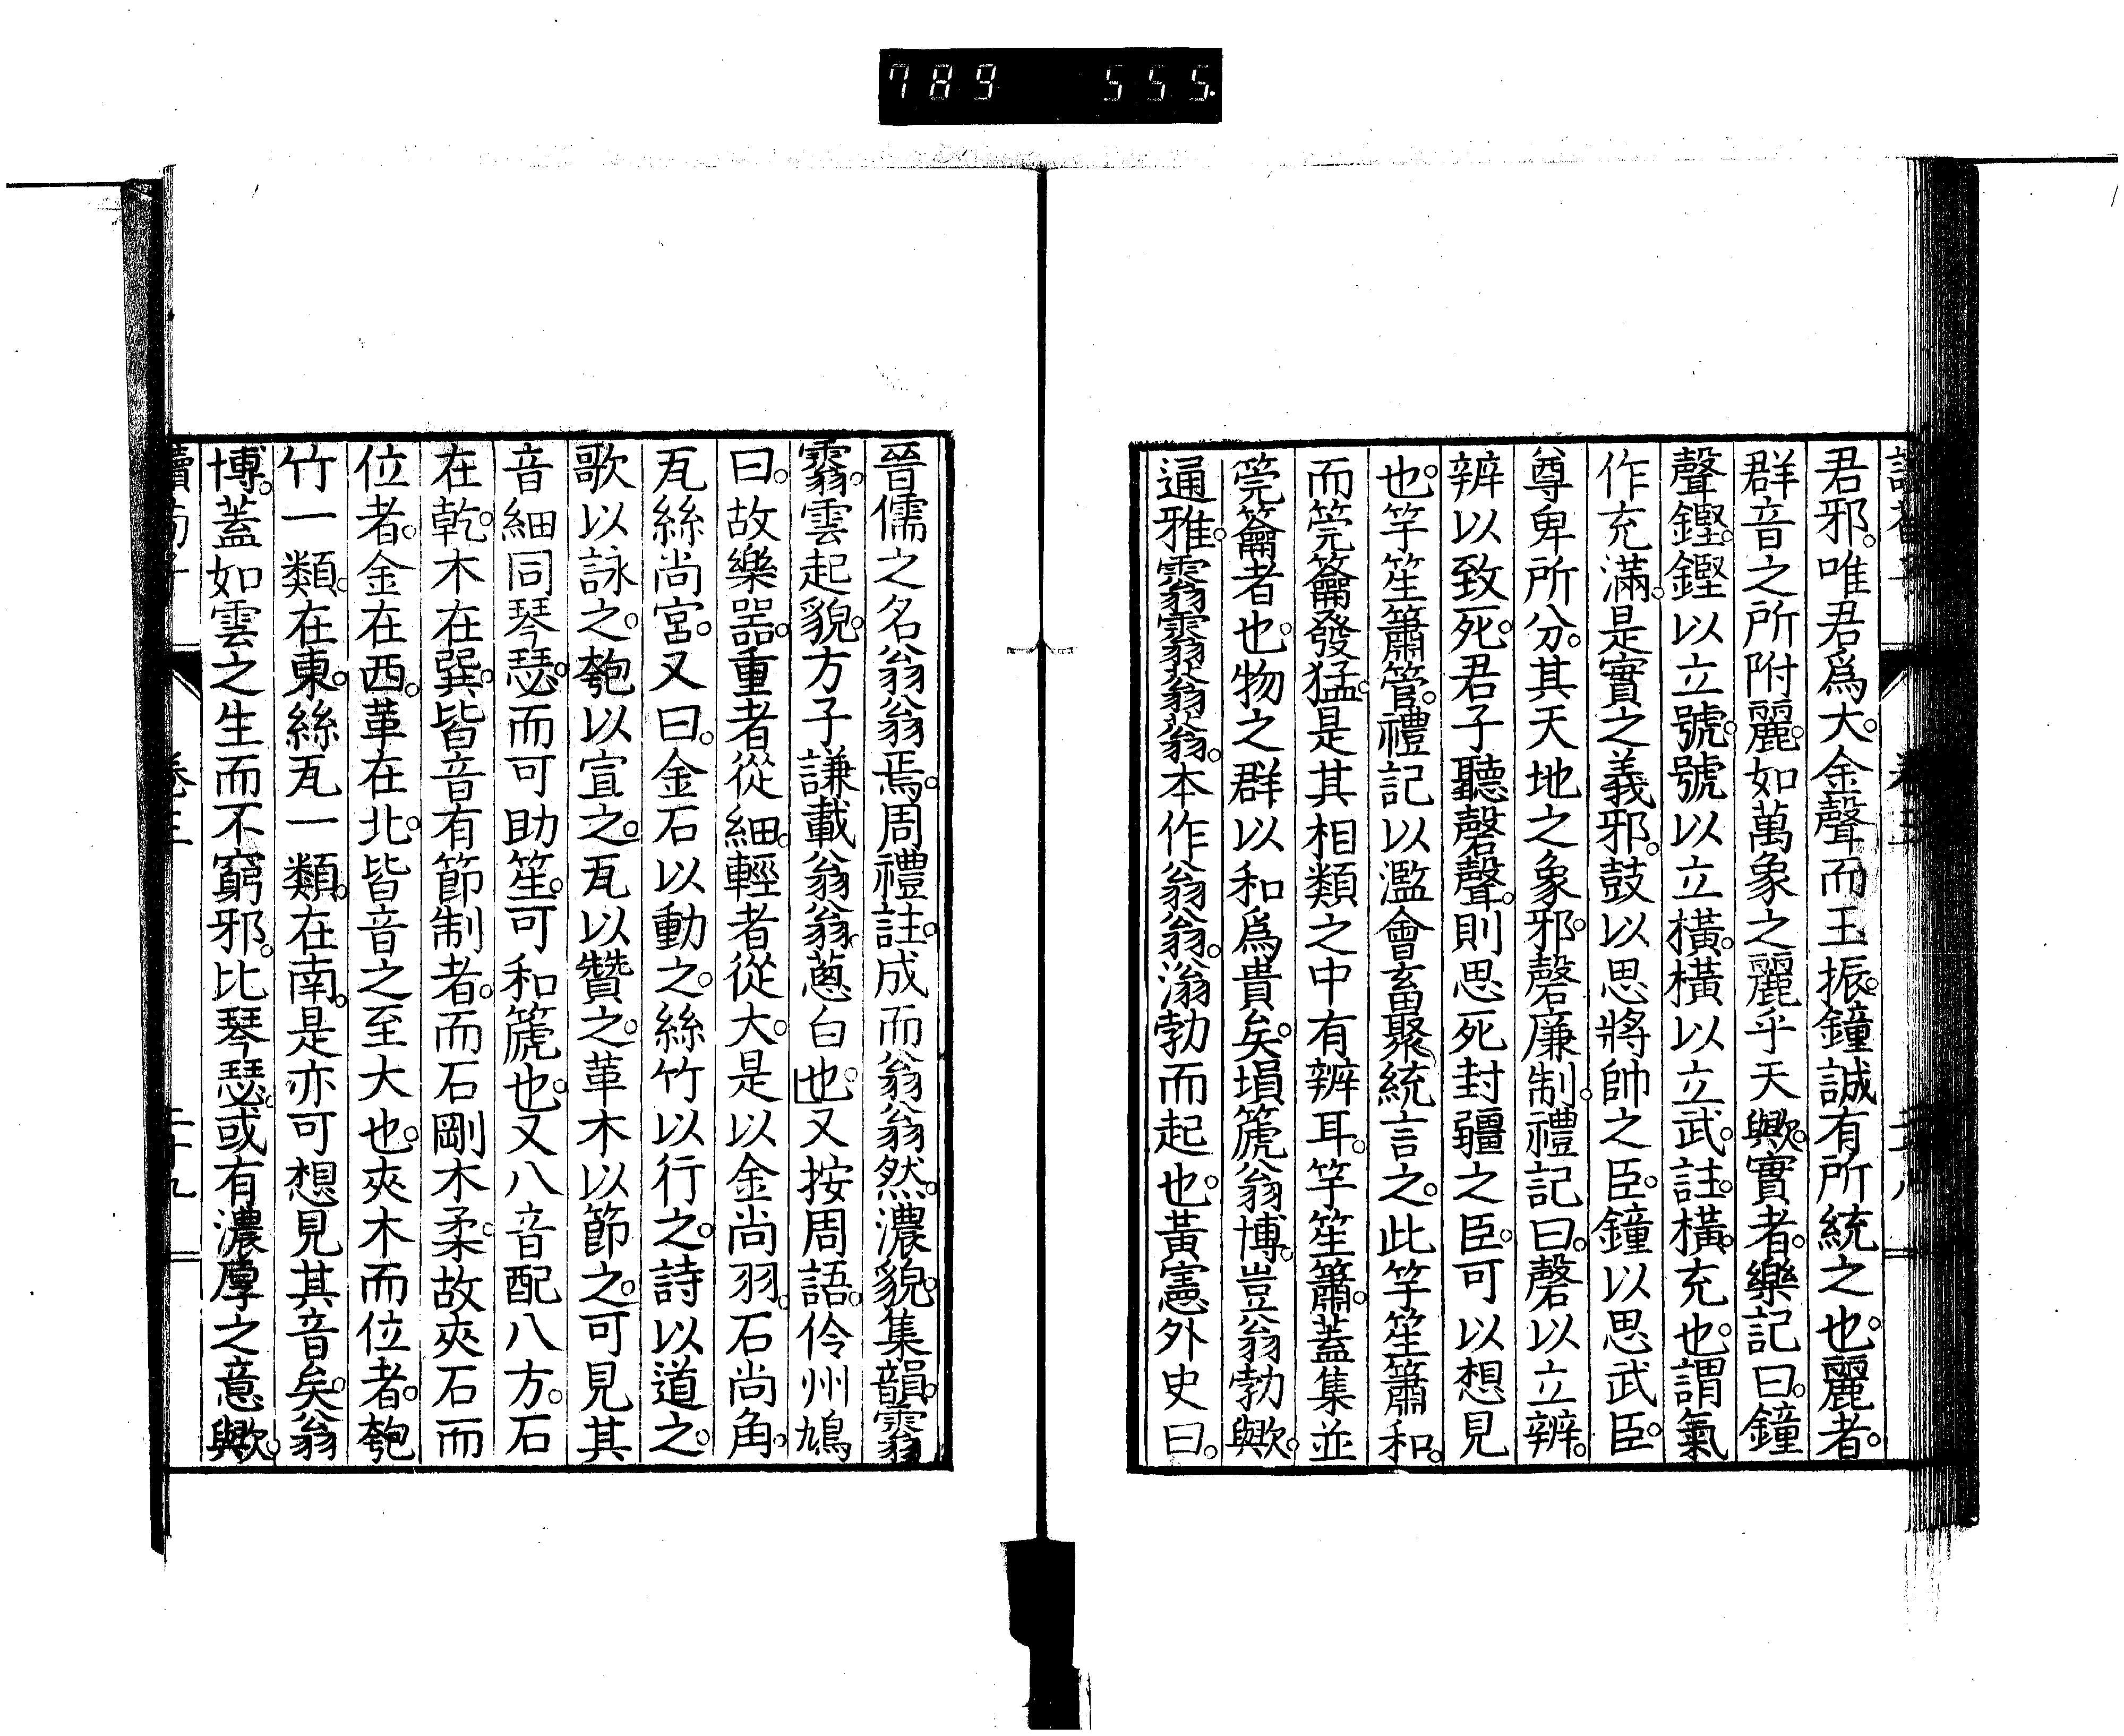 789 555
君邪。唯君爲大。金聲而玉振。鐘誠有所統之也。麗者。
群音之所附麗。如萬象之麗乎天歟。實者。樂記曰。鐘
聲鏗。鏗以立號。號以立橫。橫以立武。註。橫。充也。謂氣
作充滿。是實之義邪。鼓以思將帥之臣。鐘以思武臣。
尊卑所分。其天地之象邪。磬廉制。禮記曰。磬以立辨。
辨以致死。君子聽磬聲。則思死封疆之臣。可以想見
也。竽笙簫管。禮記以濫會畜聚統言之。此竽笙簫和。
而筦籥發猛。是其相類之中有辨耳。竽笙簫。蓋集並
筦籥者也。物之群以和爲貴矣。塤篪翁博。豈翁勃歟。
通雅。霧霧蓊蓊。本作翁翁。滃勃而起也。黃憲外史曰。
晉儒之名翁翁焉。周禮註。成而翁翁然。濃貌。集韻。霧
霧。雲起貌。方子謙載翁翁。蔥白也。又按周語。伶州鳩
曰。故樂器。重者從細。輕者從大。是以金尚羽。石尚角。
瓦絲尚宮。又曰。金石以動之。絲竹以行之。詩以道之。
歌以詠之。匏以宣之。瓦以贊之。革木以節之。可見其
音細同琴瑟。而可助笙。可和篪也。又八音配八方。石
在乾。木在巽。皆音有節制者。而石剛木柔。故夾石而
位者。金在西。革在北。皆音之至大也。夾木而位者。匏
竹一類。在東。絲瓦一類。在南。是亦可想見其音矣。翁
博。蓋如雲之生而不窮邪。比琴瑟。或有濃厚之意歟。
卷三 二十九